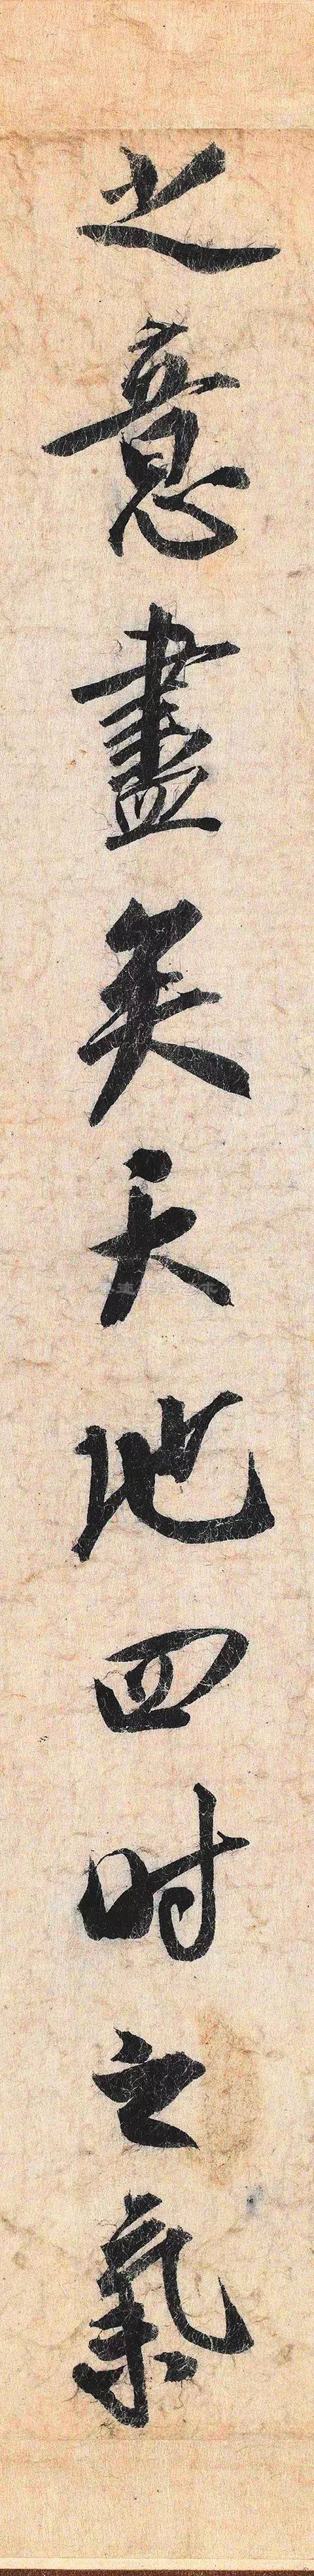 之意盡矣天地四时之氣